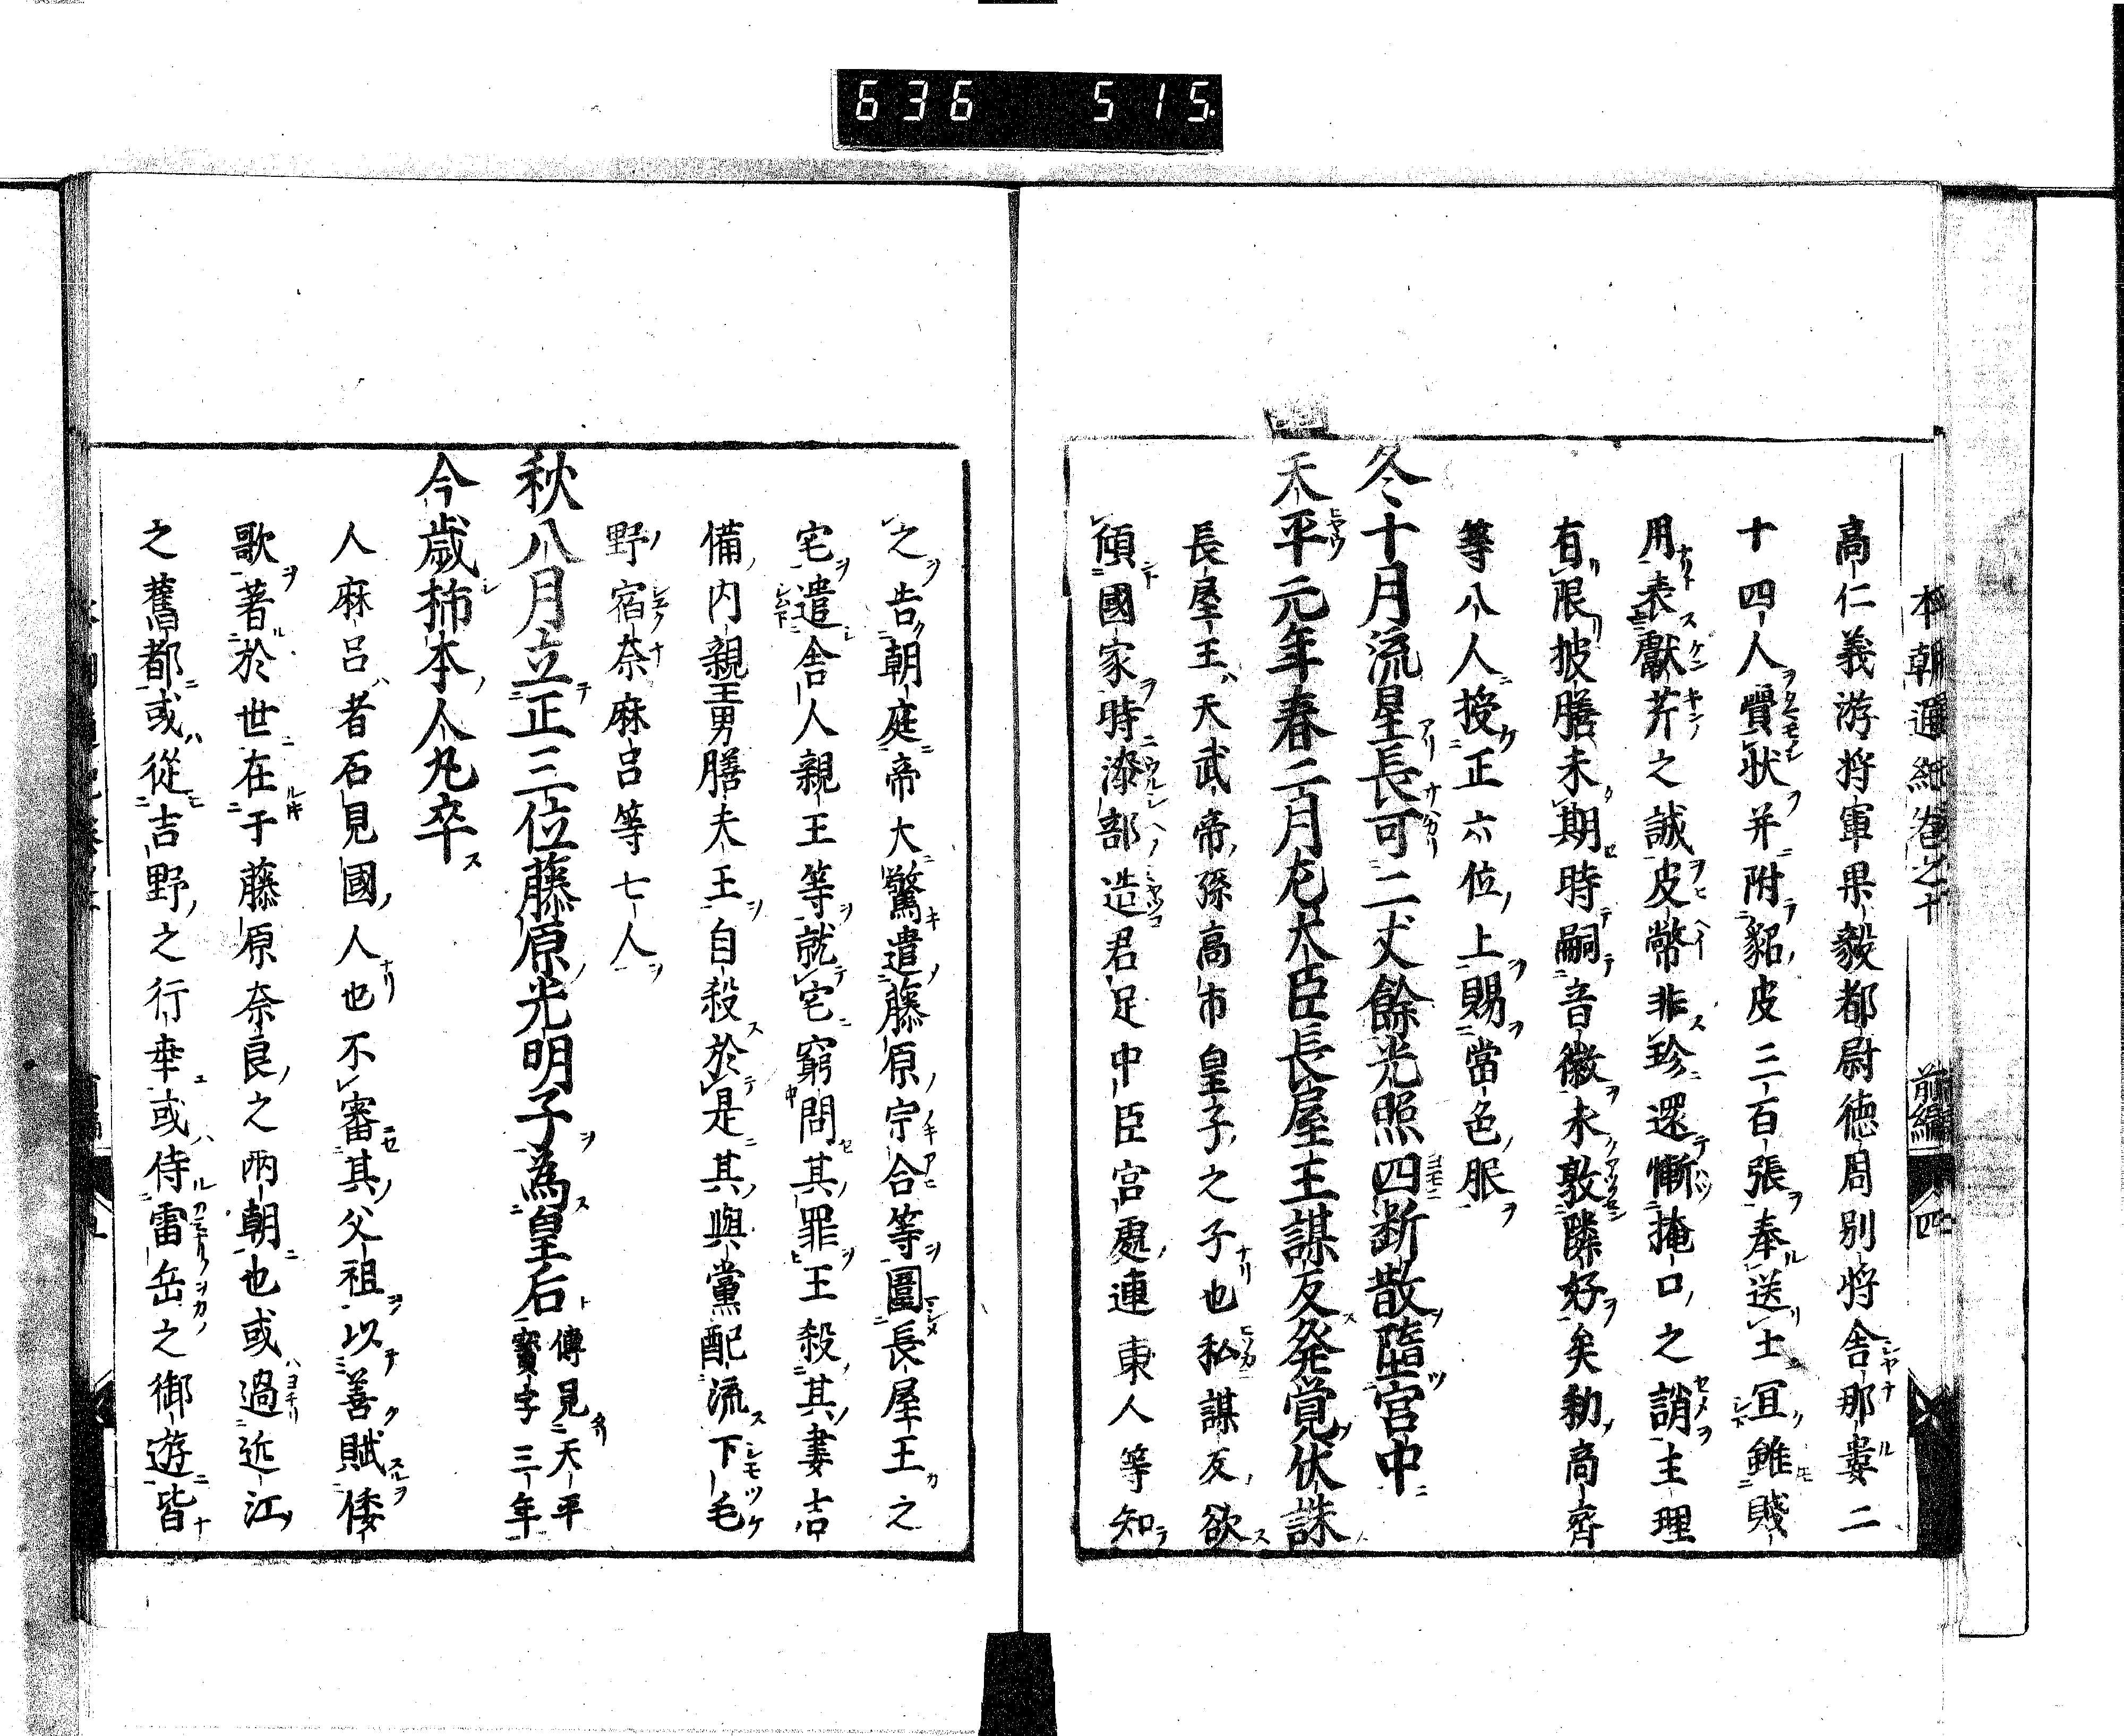 636 515
本朝通紀卷之十 前編 四
高仁義游将軍果毅都尉徳周别将舎那婁二
十四人賷状并附貂皮三百張奉送土冝雖賤
用表獻芹之誠皮幣非珍還慚掩口之誚主理
有限披膳未期時嗣音徽永敦隣好矣勅高齊
等八人授正六位上賜當色服
冬十月流星長可二丈餘光照四断散墮宮中
天平元年春二月尤大臣長屋王謀反発覚伏誅
長屋王天武帝孫高市皇子之子也私謀反欲
傾國家時漆部造君足中臣宮處連東人等知
之告朝庭帝大驚遣藤原宇合等圍長屋王之
宅遣舎人親王等就宅窮問其罪王殺其妻吉
備内親王男膳夫王自殺於是其與黨配流下毛
野宿奈麻呂等七人
秋八月立正三位藤原光明子為皇后傳見天平寳字三年
今歳柿本人丸卒
人麻呂者石見國人也不審其父祖以善賦倭
歌著於世在于藤原奈良之兩朝也或過近江
之舊都或從吉野之行幸或侍雷岳之御遊皆